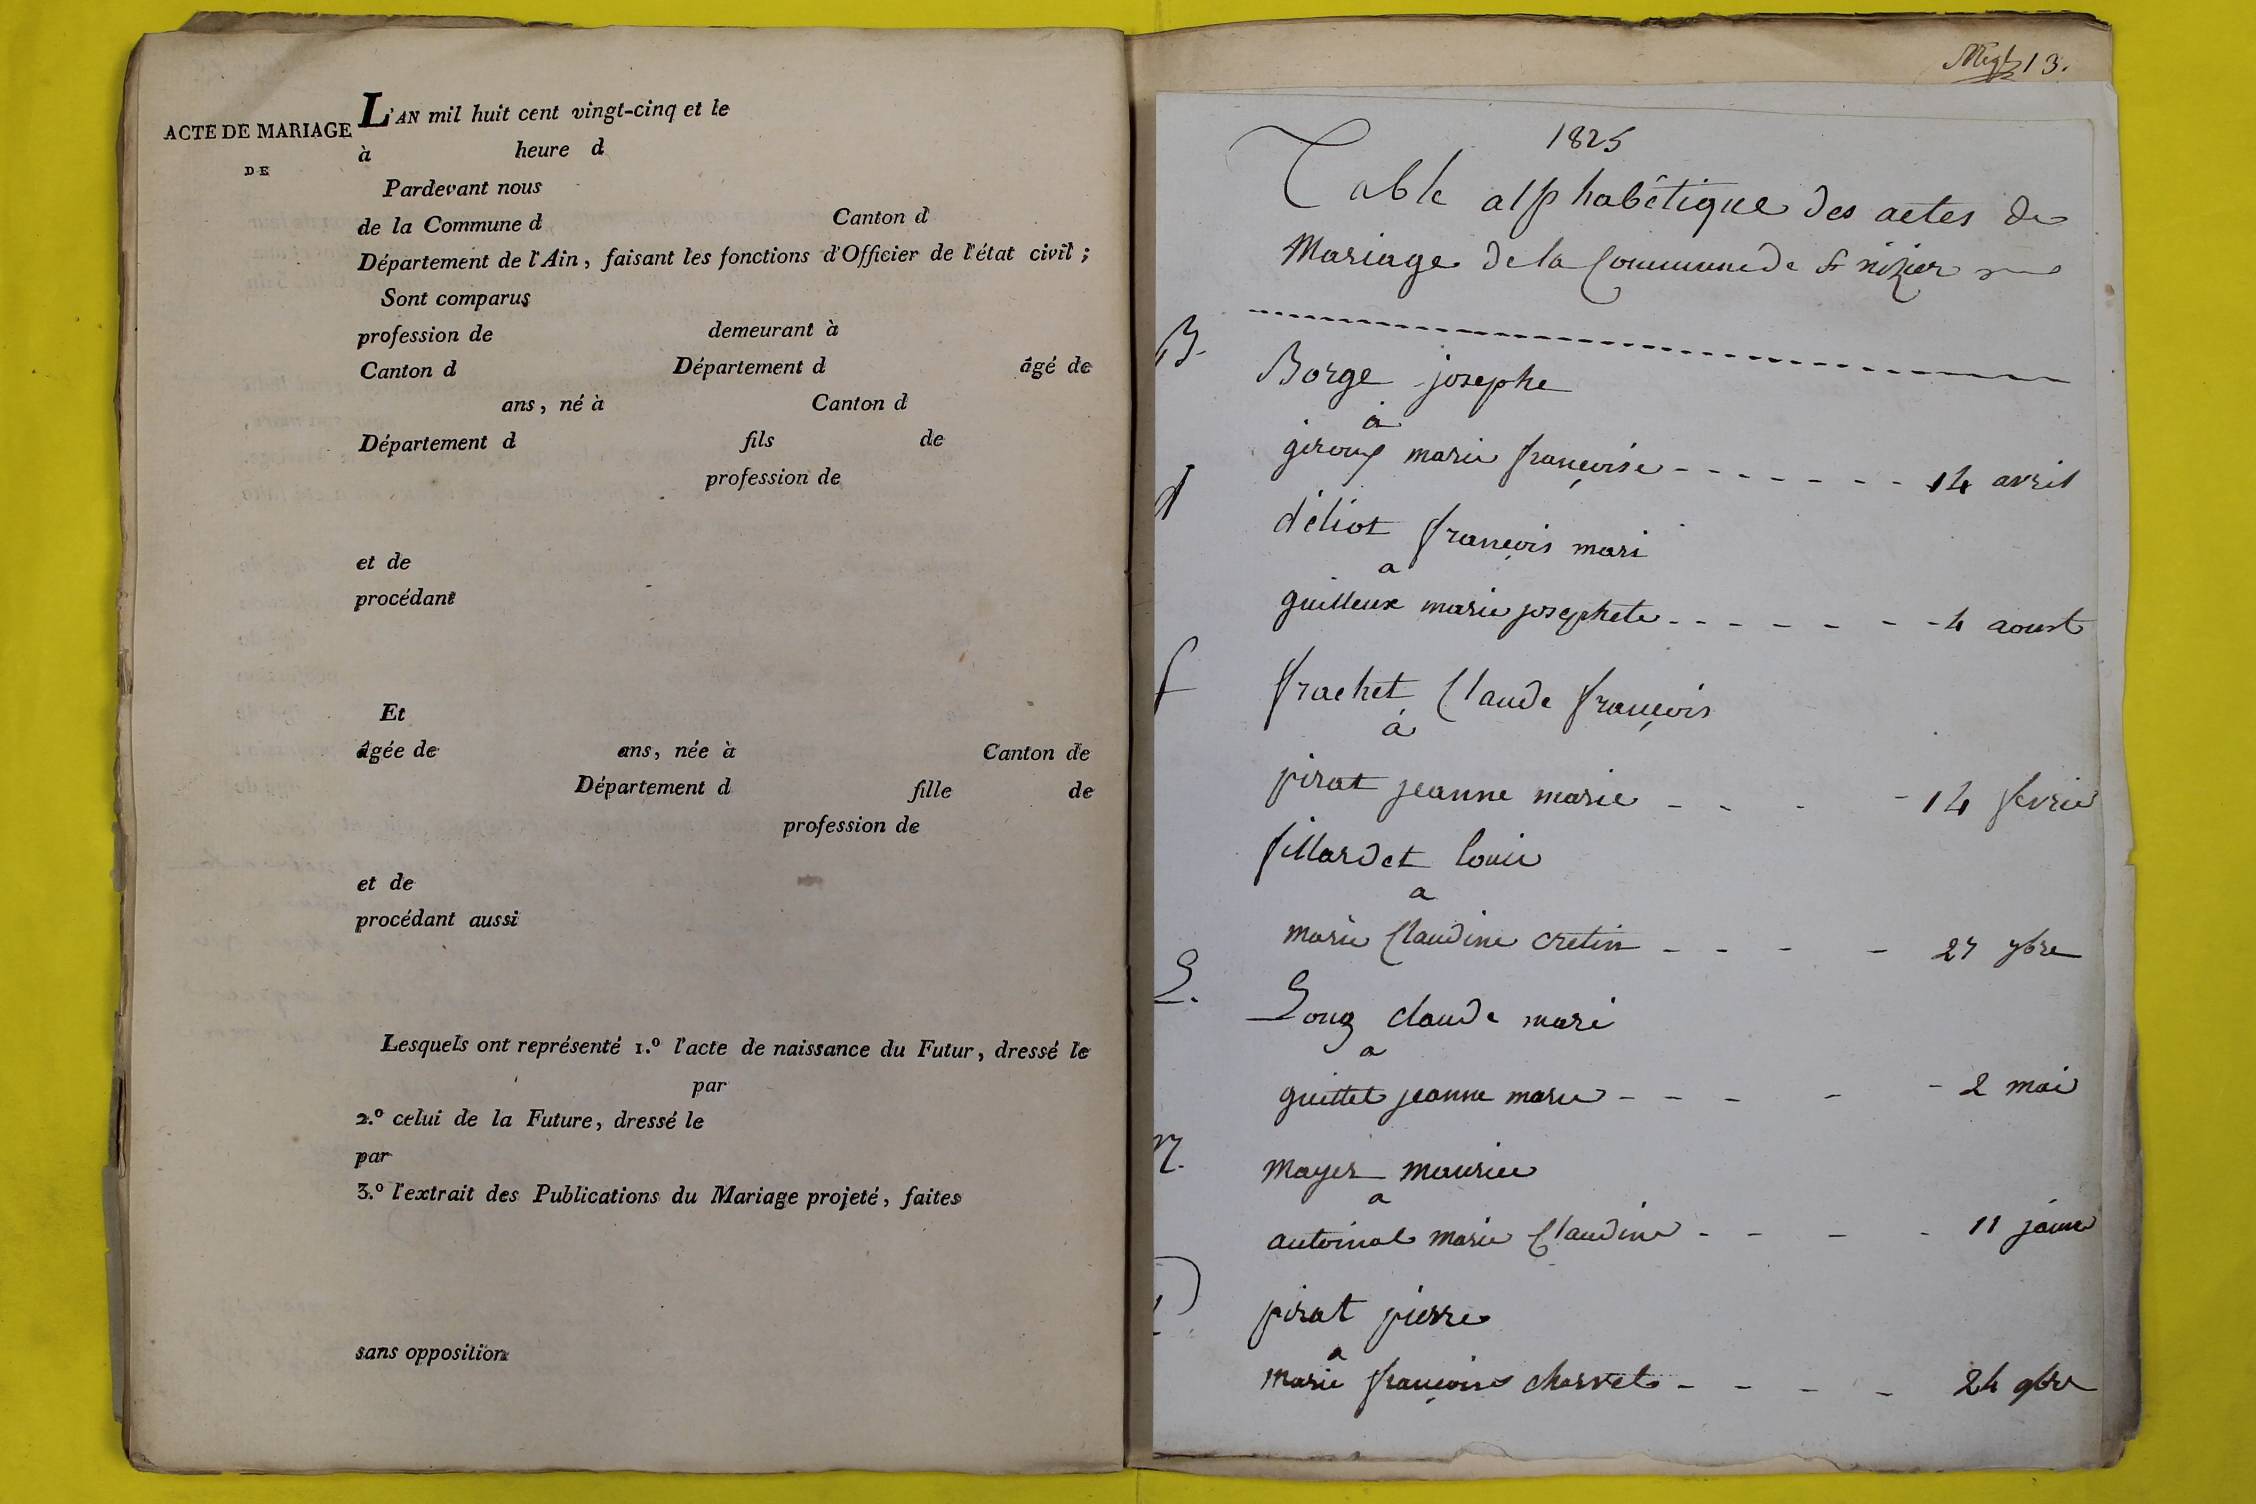 ACTE DE MARIAGE
DE
L'AN mil huit cent vingt-cinq et le
à heure d
Pardevant nous
de la Commune d Canton d
Département de l'Ain, faisant les fonctions d'Officier de l'état civil ;
Sont comparus
profession de demeurant à
Canton d Département d âgé de
ans, né à Canton d
Département d fils de
profession de
et de
procédant
Et
âgée de ans, née à Canton de
Département d fille de
profession de
et de
procédant aussi
Lesquels ont représenté 1.º l'acte de naissance du Futur, dressé le
par
2.º celui de la Future, dressé le
par
3.º l'extrait des Publications du Mariage projeté, faites
sans opposition
13.
1825
Table alphabétique des actes de
Mariage de la Commune de St nizier
B.
Borge josephe
à
giroux marie françoise - - - - - - - 14 avril
d
déliot françois mari
a
guilleux marie josephete - - - - - - - 4 aoust
f
frachet Claude françois
à
pirat jeanne marie - - - - 14 fevrie
fillardet louis
a
marie Claudine cretin - - - - 27 7bre
L.
Long claude mari
a
guittet jeanne marie - - - - - 2 mai
M.
mayer maurice
a
antoinal marie Claudine - - - - 11 janvi
P.
pirat pierre
a
marie françoise charvet - - - - 24 9bre